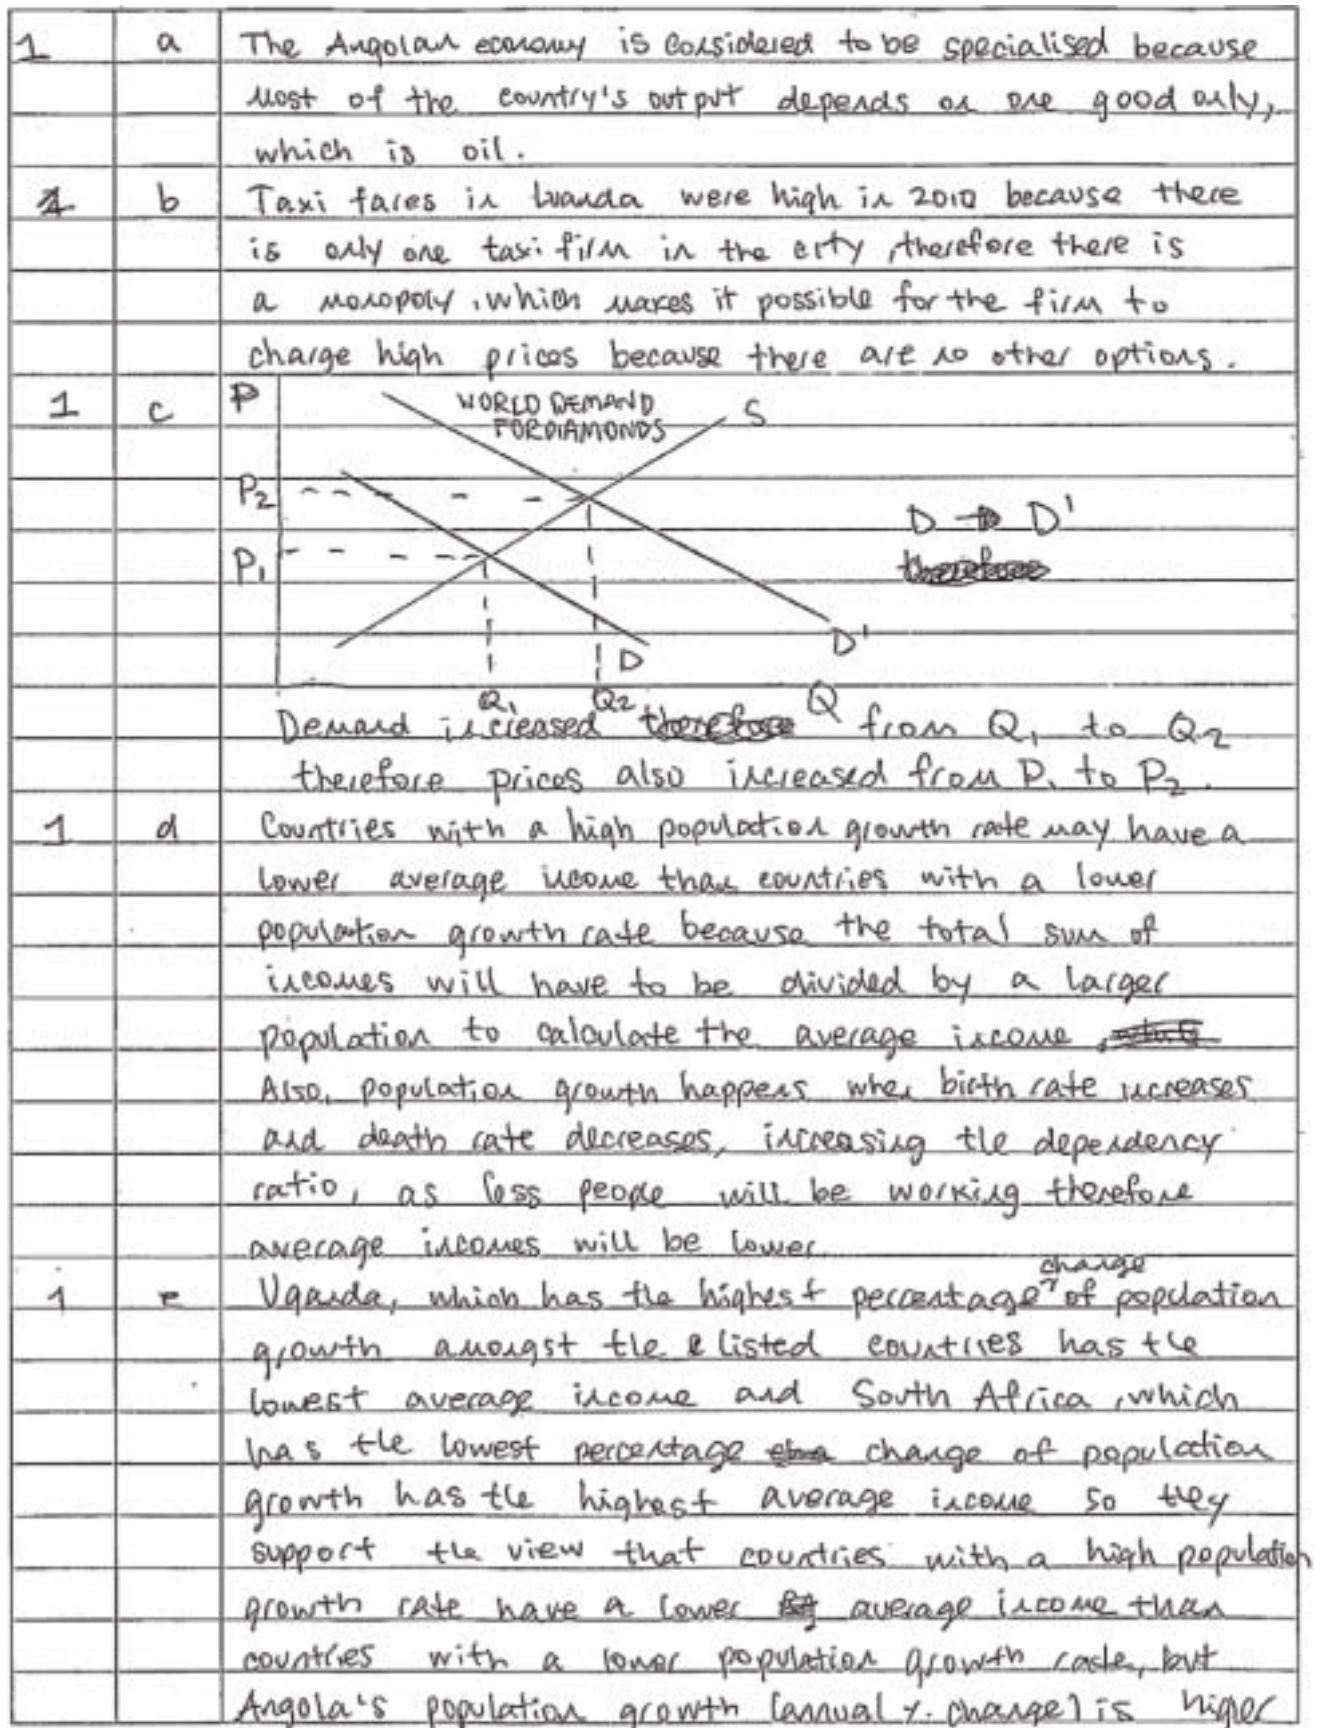 1 a The Angolan economy is considered to be specialised because
most of the country's output depends on one good only,
which is oil.
1 b Taxi fares in Luanda were high in 2010 because there
is only one taxi firm in the city, therefore there is
a monopoly, which makes it possible for the firm to
charge high prices because there are no other options.
1 c P WORLD DEMAND S
FOR DIAMONDS
P2 D → D'
P1 therefore
D D'
Q1 Q2 Q
Demand increased therefore from Q1 to Q2
therefore prices also increased from P1 to P2.
1 d Countries with a high population growth rate may have a
lower average income than countries with a lower
population growth rate because the total sum of
incomes will have to be divided by a larger
population to calculate the average income.
Also, population growth happens when birth rate increases
and death rate decreases, increasing the dependency
ratio, as less people will be working therefore
average incomes will be lower.
change
1 e Uganda, which has the highest percentage of population
growth amongst the listed countries has the
lowest average income and South Africa, which
has the lowest percentage change of population
growth has the highest average income so they
support the view that countries with a high population
growth rate have a lower average income than
countries with a lower population growth rate, but
Angola's population growth (annual %. change) is higer